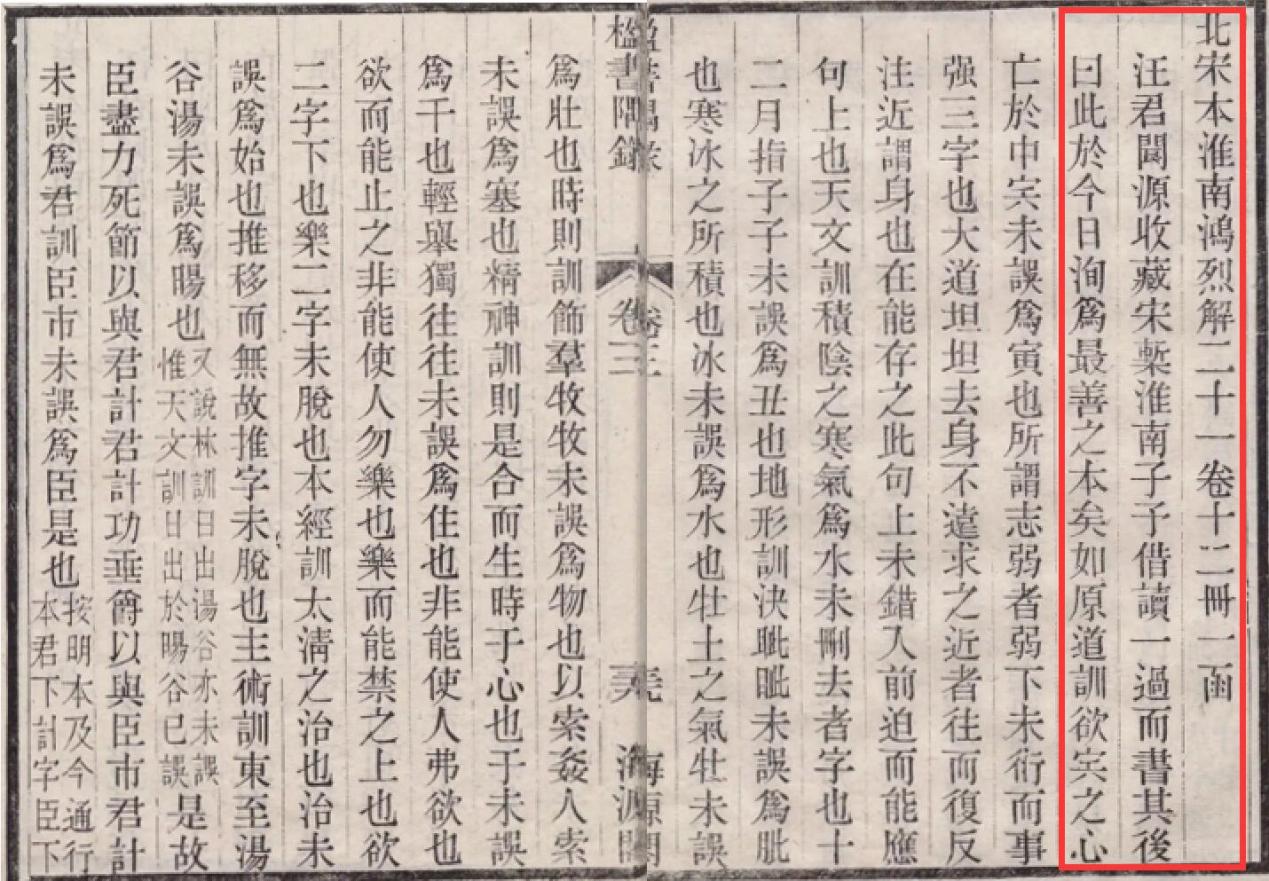 北宋本淮南鴻烈解二十一卷十二冊一函
汪君閬源收藏宋槧淮南子予借讀一過而書其後
曰此於今日洵爲最善之本矣如原道訓欲㝉之心
亡於中㝉未誤爲寅也所謂志弱者弱下未衍而事
强三字也大道坦坦去身不遠求之近者往而復反
注近謂身也在能存之此句上未錯入前迫而能應
句上也天文訓積陰之寒氣爲水未刪去者字也十
二月指子子未誤爲丑也地形訓決眦眦未誤爲肶
也寒冰之所積也冰未誤爲水也牡土之氣牡未誤
楹書隅錄 卷三 海源閣
爲壯也時則訓飾羣牧牧未誤爲物也以索姦人索
未誤爲塞也精神訓則是合而生時于心也于未誤
爲干也輕舉獨往往未誤爲住也非能使人弗欲也
欲而能止之非能使人勿樂也樂而能禁之上也欲
二字下也樂二字未脫也本經訓太淸之治也治未
誤爲始也推移而無故推字未脫也主術訓東至湯
谷湯未誤爲暘也又說林訓日出湯谷亦未誤惟天文訓日出於暘谷已誤是故
臣盡力死節以與君計君計功垂爵以與臣市君計
未誤爲君訓臣市未誤爲臣是也按明本及今通行本君下計字臣下